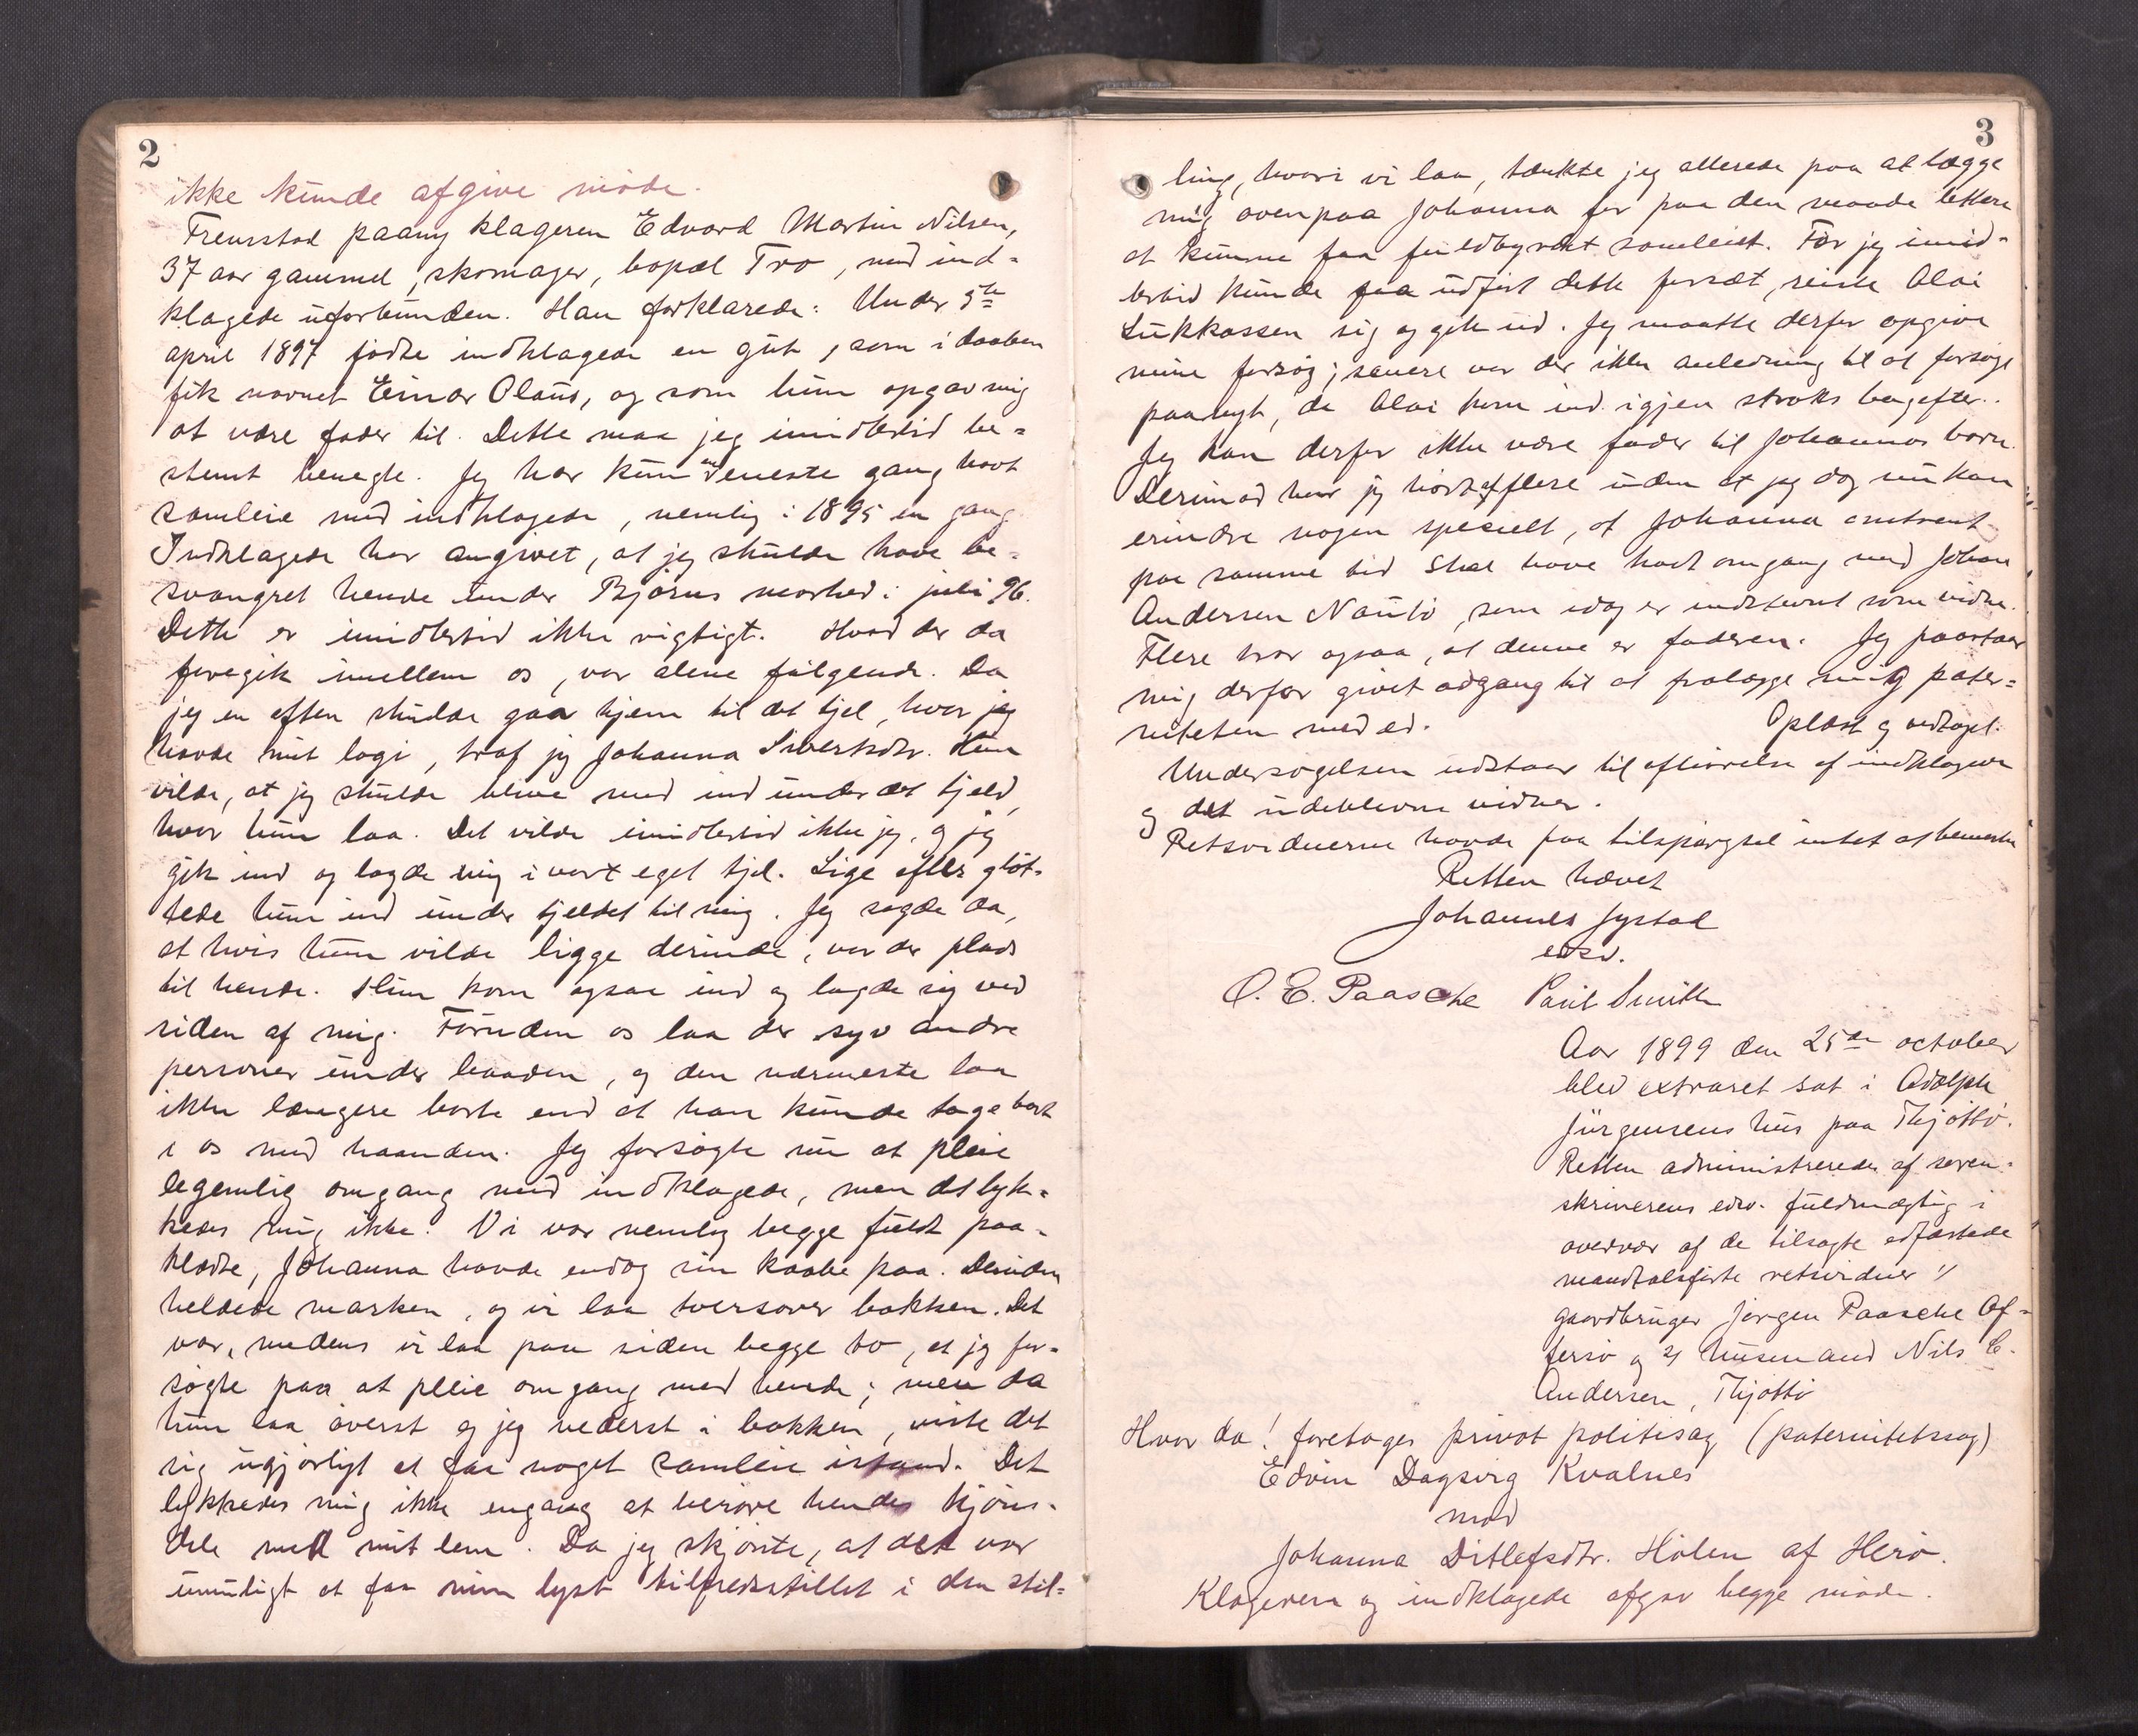 2
ikke kunde afgive møde.
Fremstod paany klageren Edvard Martin Nilsen,
37 aar gammel, skomager, bopæl Tro, med ind-
klagede uforbunden. Han forklarede: Under 5te
april 1897 fødte indklagede en gut, som i daaben
fik navnet Einar Olaus, og som hun opgav mig
at være fader til. Dette maa jeg imidlertid be-
stemt benegte. Jeg har kun en eneste gang havt
samleie med indklagede, nemlig i 1895 en gang
Indklagede har angivet, at jeg skulde have be-
svangret hende under Bjørns marked i juli 96.
Dette er imidlertid ikke rigtigt. Hvad der da
foregik imellem os, var alene følgende. Da
jeg en aften skulde gaa hjem til det tjel, hvor jeg
havde mit logi, traf jeg Johanna Sivertsdtr. Hun
vilde, at jeg skulde blive med ind under det tjeld,
hvor hun laa. Det vilde imidlertid ikke jeg, og jeg
gik ind og lagde mig i vort eget tjel. Lige efter gløt-
tede hun ind under tjeldet til mig. Jeg sagde da,
at hvis hun vilde ligge derinde, var der plads
til hende. Hun kom ogsaa ind og lagde sig ved
siden af mig. Foruden os laa der syv andre
personer under baaden, og den nærmeste laa
ikke længere borte end at han kunde tage bort
i os med haanden. Jeg forsøgte nu at pleie
legemlig omgang med indklagede, men det lyk-
kedes mig ikke. Vi var nemlig begge fuldt paa-
klædte, Johanna havde endog sin kaabe paa. Desuden
heldede marken, og vi laa tversover bakken. Det
var, medens vi laa paa siden begge to, at jeg for-
søgte paa at pleie omgang med hende; men da
hun laa øverst og jeg nederst i bakken, viste det
sig ugjørligt at faa noget samleie istand. Det
lykkedes mig ikke engang at berøre hendes kjøns-
dele med mit lem. Da jeg skjønte, at det var
umuligt at faa min lyst tilfredsstillet i den stil-
3
ling, hvori vi laa, tænkte jeg allerede paa at lægge
mig ovenpaa Johanna for paa den maade lettere
at kunne faa fuldbyrdet samleiet. Før jeg imid-
lertid kunde faa udført dette forsæt, reiste Alai
Lukkassen sig og gik ud. Jeg maatte derfor opgive
mine forsøg; senere var der ikke anledning til at forsøge
paanyt, da Alai kom ind igjen straks bagefter.
Jeg kan derfor ikke være fader til Johannas barn.
Derimod har jeg hørt af flere uden at jeg dog nu kan
erindre nogen specielt, at Johanna omtrent
paa samme tid skal have havt omgang med Johan
Andersen Nautø, som idag er indstevnt som vidne.
Flere tror ogsaa, at denne er faderen. Jeg paastaar
mig derfor givet adgang til at fralægge mig pater-
niteten med ed. Oplæst og vedtaget.
Undersøgelsen udstaar til afhørelse af indklagede
og det udeblevne vidner.
Retsvidnerne havde paa tilspørgsel intet at bemerke
Retten hævet
Johannes Jystad
edsv.
O. E. Paasche Paul Smith
Aar 1899 den 25de october
blev extraret sat i Adolph
Jürgensens hus paa Thjøttø.
Retten administreredes af soren-
skriverens edsv. fuldmægtig i
overvær af de tilsagte edfæstede
mandtalsførte retsvidner 1/
gaardbruger Jørgen Paasche Of-
fersø og 2/ husmand Nils C.
Andersen, Thjøttø
Hvor da! foretages privat politisag (paternitetssag)
Edvin Dagsvig Kvalnes
mod
Johanna Ditlefsdtr. Hølen af Herø.
Klageren og indklagede afgav begge møde.